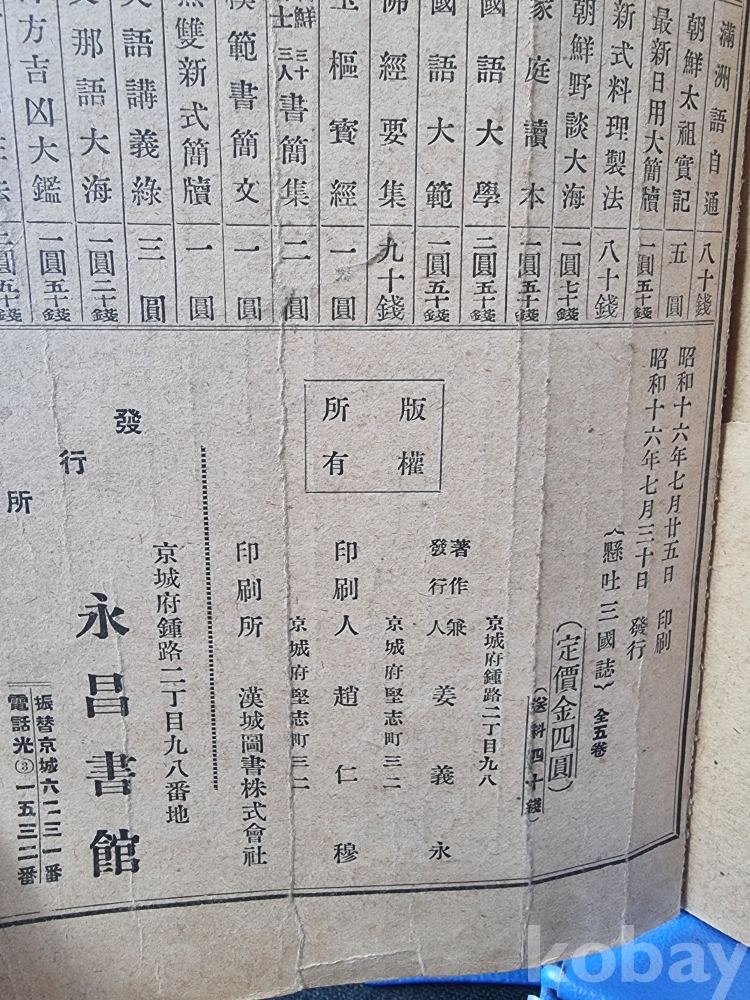 滿洲語自通 八十錢
朝鮮太祖實記 五圓
最新日用大簡牘 一圓五十錢
新式料理製法 八十錢
朝鮮野談大海 一圓七十錢
家庭讀本 一圓五十錢
國語大學 二圓五十錢
國語大範 一圓五十錢
佛經要集 九十錢
玉樞寶經 一圓
三十三人書簡集 二圓
模範書簡文 一圓
無雙新式簡牘 一圓
語講義綠 三圓
支那語大海 一圓二十錢
方吉凶大鑑 一圓五十錢
二圓五十錢
昭和十六年七月廿五日 印刷
昭和十六年七月三十日 發行
(懸吐三國誌) 全五卷
(定價金四圓)
(送料四十錢)
版權
所有
京城府鍾路二丁目九八
著作兼
發行人 姜義永
京城府堅志町三二
印刷人 趙仁穆
京城府堅志町三二
印刷所 漢城圖書株式會社
京城府鍾路二丁目九八番地
發行所 永昌書館
振替京城六二三一番
電話光③一五三二番
kobay